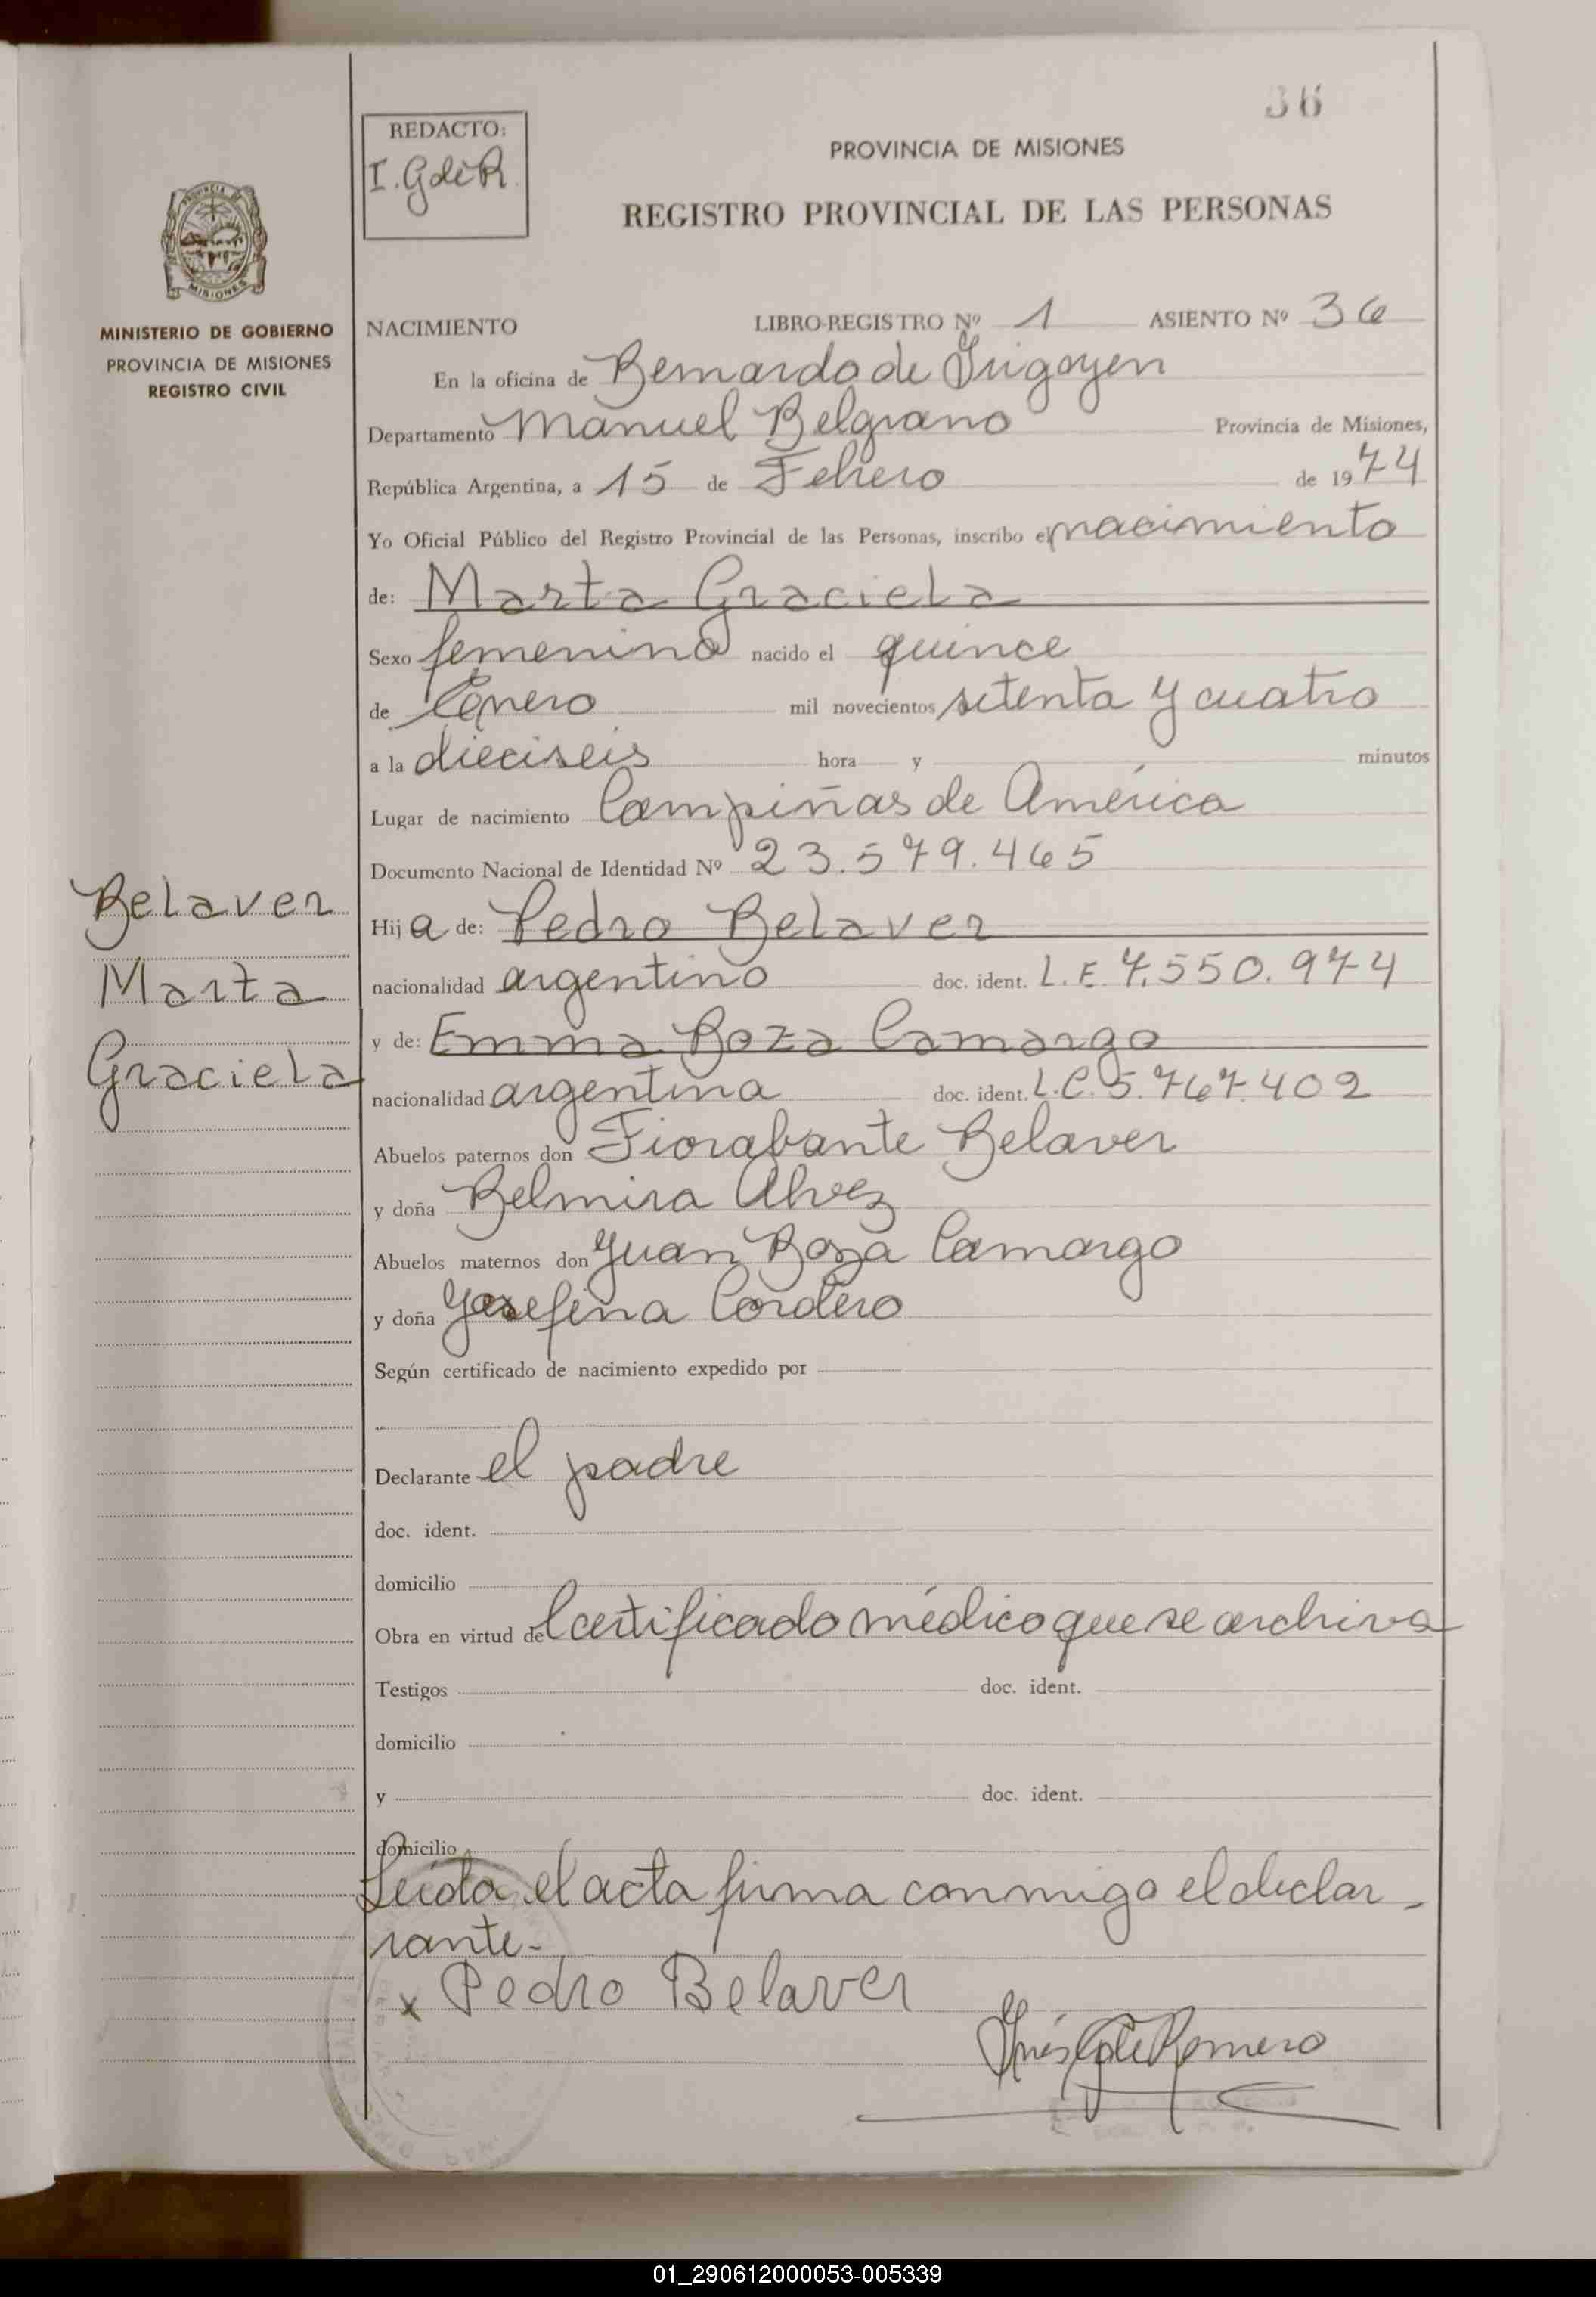 36
REDACTO:
I. GdeR.
PROVINCIA DE MISIONES
REGISTRO PROVINCIAL DE LAS PERSONAS
MISIONES
MINISTERIO DE GOBIERNO
PROVINCIA DE MISIONES
REGISTRO CIVIL
NACIMIENTO LIBRO-REGISTRO Nº 1 ASIENTO Nº 36
En la oficina de Bernardo de Irigoyen
Departamento Manuel Belgrano Provincia de Misiones,
República Argentina, a 15 de Febrero de 1974
Yo Oficial Público del Registro Provincial de las Personas, inscribo el nacimiento
de: Marta Graciela
Sexo femenino nacido el quince
de Enero mil novecientos setenta y cuatro
a la dieciseis hora y minutos
Lugar de nacimiento Campiñas de América
Documento Nacional de Identidad Nº 23.579.465
Belaver
Marta
Graciela
Hija de: Pedro Belaver
nacionalidad argentino doc. ident. L.E. 7.550.974
y de: Emma Boza Camargo
nacionalidad argentina doc. ident. L.C. 5.767.402
Abuelos paternos don Fiorabante Belaver
y doña Belmira Alvez
Abuelos maternos don Juan Boza Camargo
y doña Josefina Cordero
Según certificado de nacimiento expedido por
Declarante el padre
doc. ident.
domicilio
Obra en virtud del certificado médico que se archiva
Testigos doc. ident.
domicilio
y doc. ident.
domicilio
Leída el acta firma conmigo el declar-
rante-
x Pedro Belaver
Inés G de Romero
01_290612000053-005339